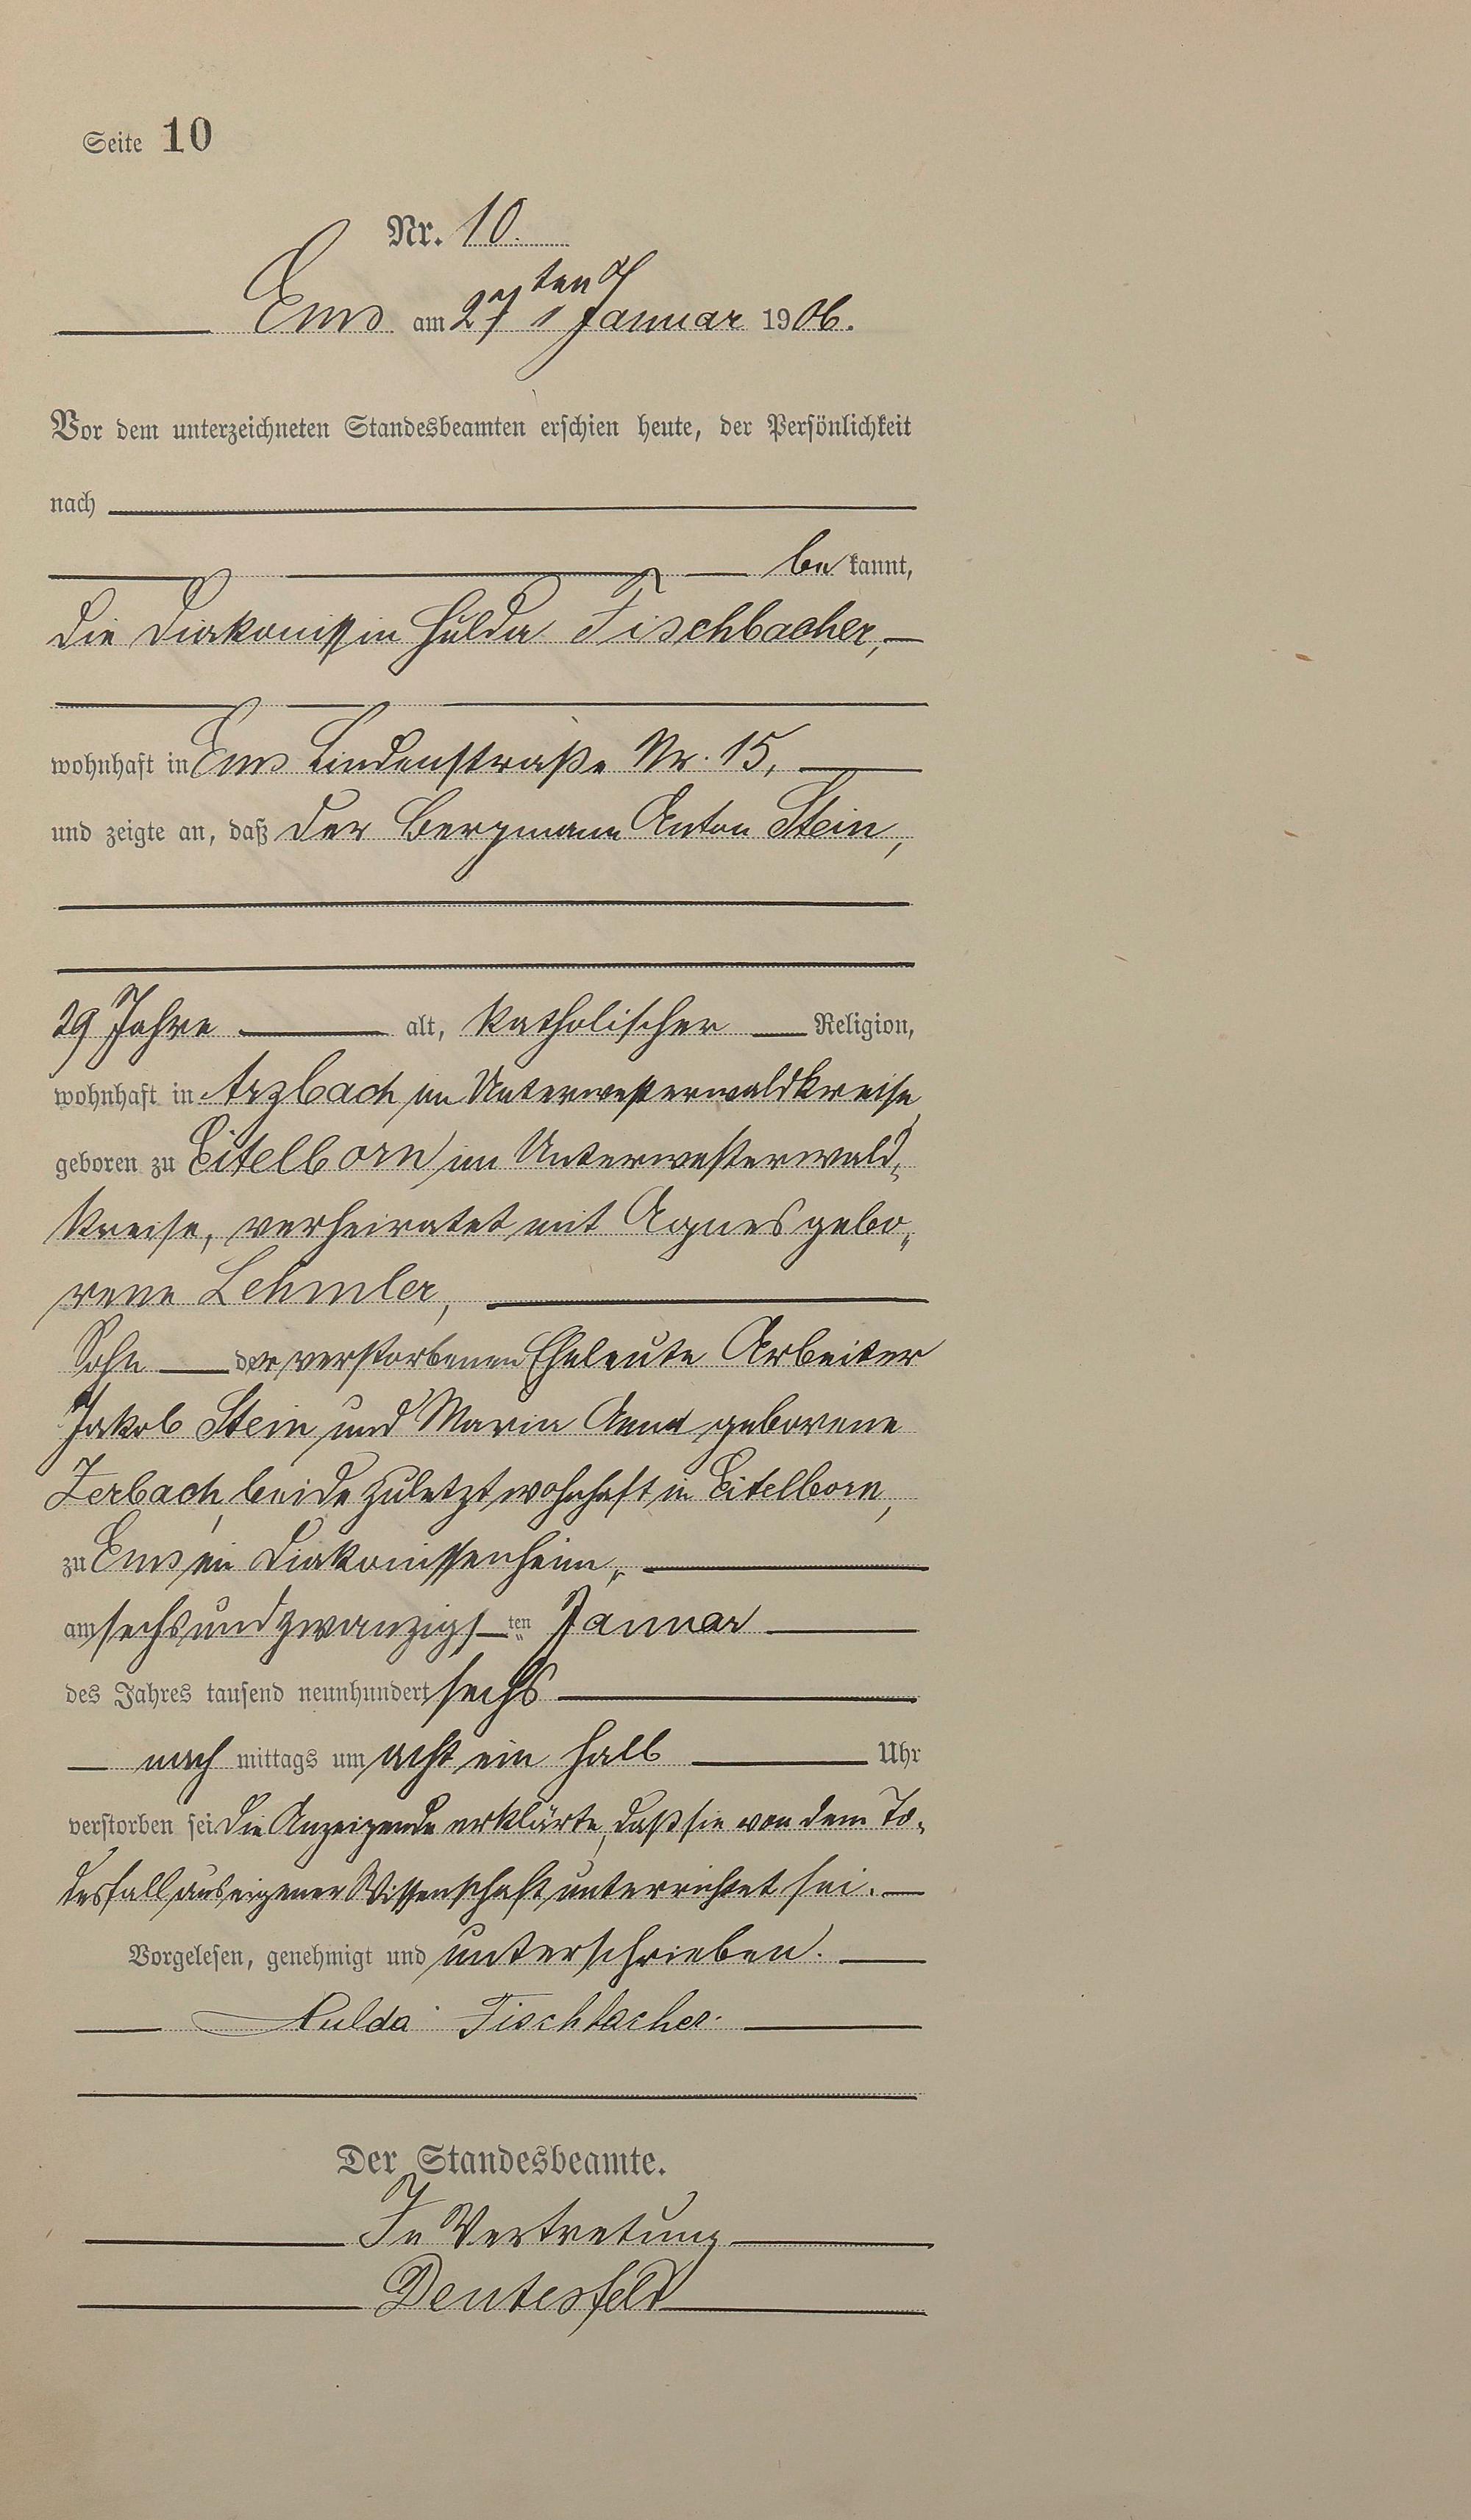 Seite 10
Nr. 10.
Ems am 27ten Januar 1906.
Vor dem unterzeichneten Standesbeamten erschien heute, der Persönlichkeit
nach
be kannt,
die Diakonissin Hulda Fischbacher,
wohnhaft in Ems Lindenstraße Nr. 15,
und zeigte an, daß der Bergmann Anton Stein,
29 Jahre alt, katholischer Religion,
wohnhaft in Arzbach im Unterwesterwaldkreise
geboren zu Eitelborn im Unterwesterwald„
kreise, verheiratet mit Agnes gebo„
rene Lehmler,
Sohn der verstorbenen Eheleute Arbeiter
Jakob Stein und Maria Anna geborene
Zerbach, beide zuletzt wohnhaft in Eitelborn,
zu Ems im Diakonissenheim„
am sechsundzwanzigs ten Januar
des Jahres tausend neunhundert sechs
nach mittags um acht ein halb Uhr
verstorben sei. Die Anzeigende erklärte, daß sie von dem To„
desfall aus eigener Wissenschaft unterrichtet sei.
Vorgelesen, genehmigt und unterschrieben.
Hulda Fischbacher.
Der Standesbeamte.
In Vertretung
Deutesfeld